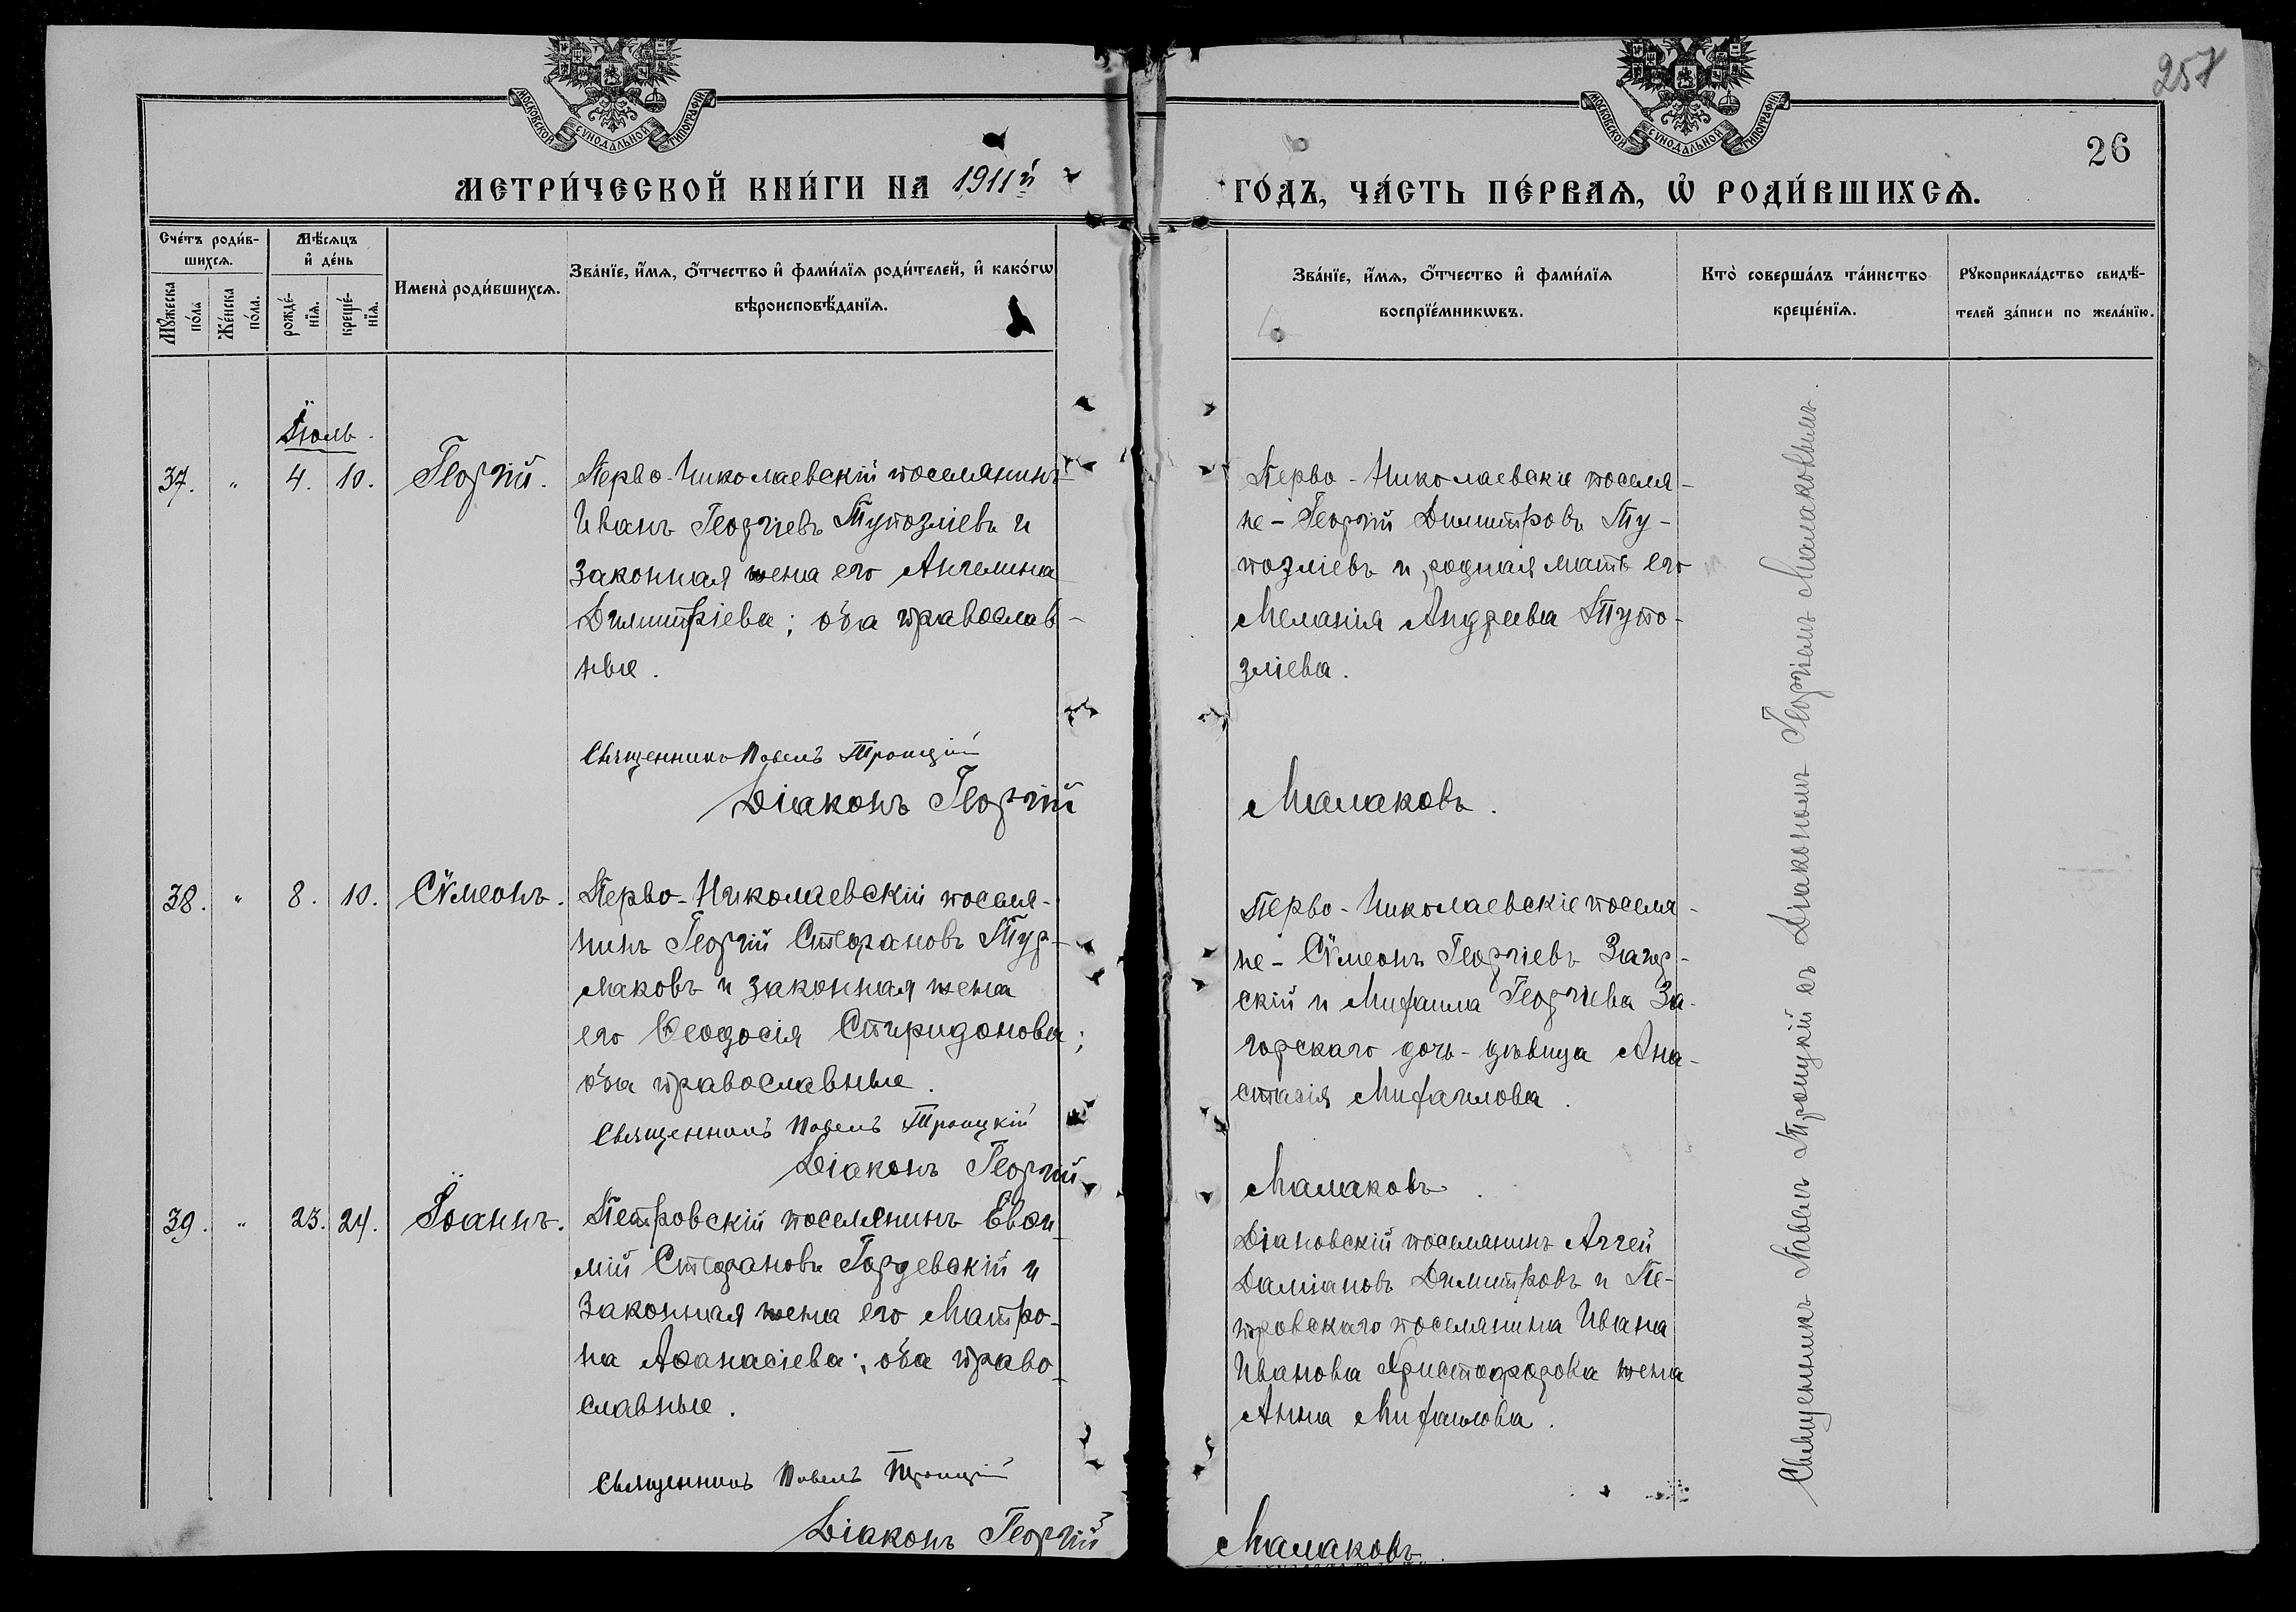 257
26
МОСКОВСКОЙ СѴНОДАЛЬНОЙ ТИПОГРАФІИ
МОСКОВСКОЙ СѴНОДАЛЬНОЙ ТИПОГРАФІИ
МЕТРИ́ЧЕСКОЙ КНИ́ГИ НА 1911й
ГО́ДЪ, ЧА́СТЬ ПЕ́РВАѦ, Ѡ҆ РОДИ́ВШИХСѦ.
Сче́тъ роди́в-
шихсѧ.
Мꙋ́жеска по́ла
Же́нска по́ла.
Мѣ́сѧцъ
и҆ де́нь
рожде́-
нїѧ.
креще́-
нїѧ.
Имена̀ роди́вшихсѧ.
Зва́нїе, и҆́мѧ, ѻ҆́тчество и҆ фами́лїѧ роди́телей, и҆ како́гѡ
вѣроисповѣ́данїѧ.
Зва́нїе, и҆́мѧ, ѻ҆́тчество и҆ фами́лїѧ
воспрїе́мникѡвъ.
Кто̀ соверша́лъ та́инство
креще́нїѧ.
Рꙋкоприкла́дство свидѣ́-
телей за́писи по жела́нїю.
Іюль.
37. " 4. 10. Георгій.
Перво-Николаевскій поселянинъ
Иванъ Георгіевъ Тупозліевъ и
законная жена его Ангелина
Димитріева; оба православ-
ные.
Священникъ Павелъ Троицкій
Діаконъ Георгій
Перво-Николаевскіе поселя-
не - Георгій Димитровъ Ту-
позліевъ и родная мать его
Меланія Андреева Тупо-
зліева.
Малаковъ.
38. " 8. 10. Сѵмеонъ.
Перво-Николаевскій поселя-
нинъ Георгій Стефановъ Тур-
лаковъ и законная жена
его Ѳеодосія Спиридонова;
оба православные.
Священникъ Павелъ Троицкій
Діаконъ Георгій
Перво-Николаевскіе поселя-
не - Сѵмеонъ Георгіевъ Загор-
скій и Михаила Георгіева За-
горскаго дочь-дѣвица Ана-
стасія Михаилова.
Малаковъ.
39. " 23. 24. Іоаннъ.
Петровскій поселянинъ Евѳи-
мій Стефановъ Гордевскій и
законная жена его Матро-
на Аѳанасіева; оба право-
славные.
Священникъ Павелъ Троицкій
Діаконъ Георгій
Діановскій поселянинъ Аггей
Даміановъ Димитровъ и Пе-
тровскаго поселянина Ивана
Иванова Христофорова жена
Анна Михаилова.
Малаковъ.
Священникъ Павелъ Троицкій съ Діакономъ Георгіемъ Малаковымъ.